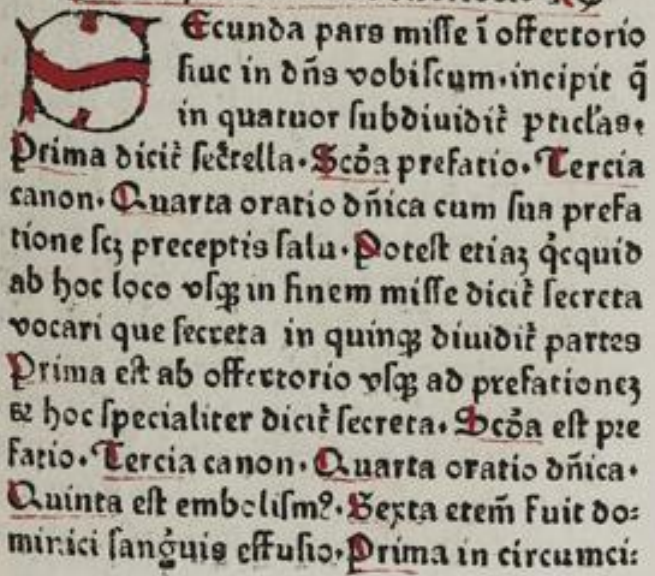 Secunda pars miſſe ī offertorio
ſiue in dñs vobiſcum·incipit q̄
in quatuor ſubdiuidit᷑ pticl̓as·
Prima dicit᷑ ſecr̄ella·Scd̓a prefatio·Tercia
canon·Quarta oratio dñica cum ſua prefa
tione ſcꝫ preceptis ſalu·Poteſt etiaꝫ q̇cquid
ab hoc loco vſqꝫ in finem miſſe dicit᷑ ſecreta
vocari que ſecreta in quinqꝫ diuidit᷑ partes
Prima eſt ab offertorio vſqꝫ ad prefationeꝫ
⁊ hoc ſpecialiter dicit᷑ ſecreta·Scd̓a eſt pꝛe
fatio·Tercia canon·Quarta oratio dñica·
Quinta eſt emboliſmꝰ·Sexta etem̄ fuit do⸗
minici ſangͥuis effuſio·Prima in circumci⸗